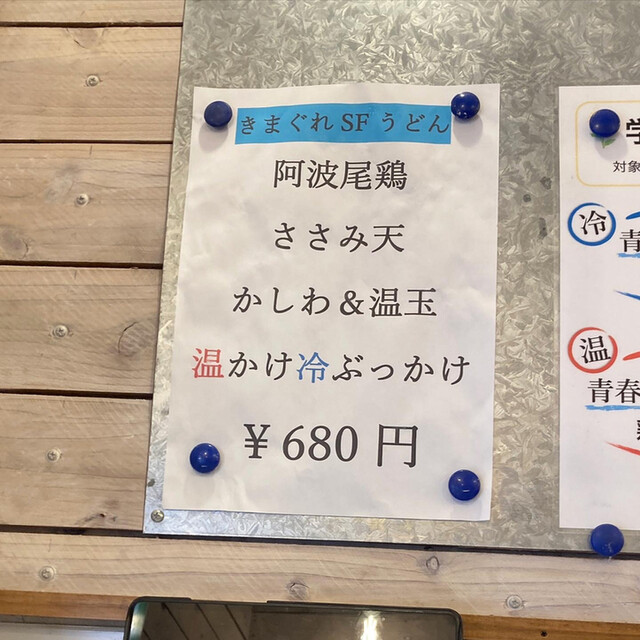 きまぐれSFうどん
阿波尾鶏
ささみ天
かしわ&温玉
温かけ冷ぶっかけ
¥680円
学
対象
冷
青
温
青春